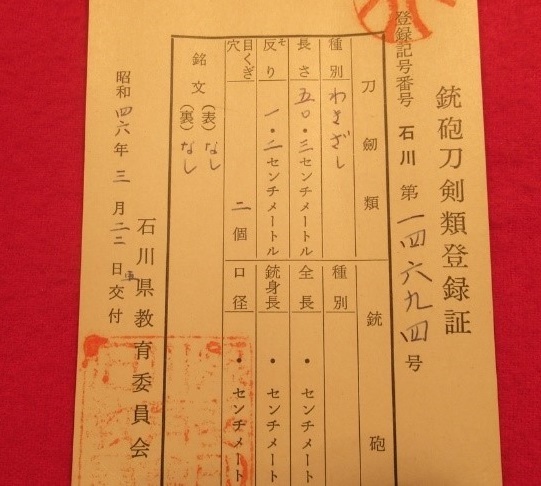 銃砲刀剣類登録証
登録記号番号 石川 第一四六九四号
刀劔類
銃砲
種別 わきざし
種別
長さ 五〇・三センチメートル
全長 ・ センチメート
反り そ 一・二センチメートル
銃身長 ・ センチメート
目くぎ穴 二個
口径 ・ センチメート
銘文 (表) なし
(裏) なし
石川県教育委員会
昭和四六年三月二三日交付